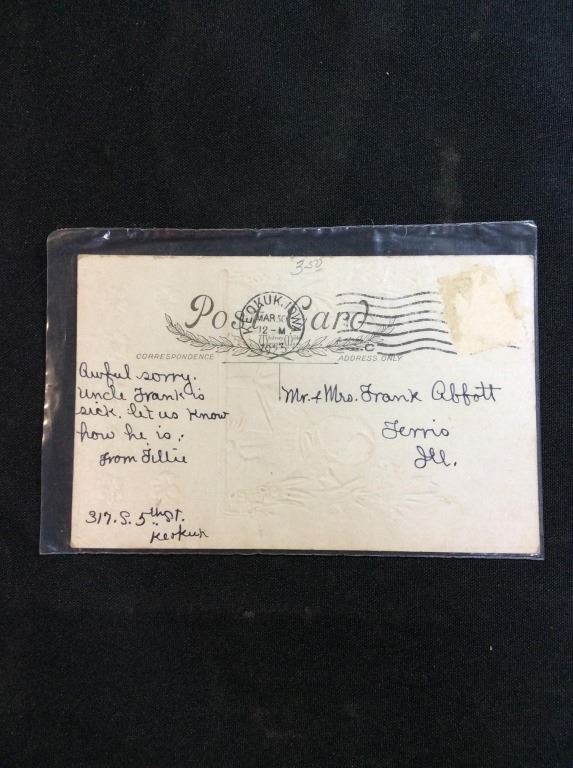 3.50
Post Card
KEOKUK, IOWA
MAR 30
12-M
CORRESPONDENCE
ADDRESS ONLY
Awful sorry.
Uncle Frank is
sick. let us know
how he is.
From Tillie
317. S. 5th St.
Keokuk
Mr. & Mrs. Frank Abbott
Ferris
Ill.